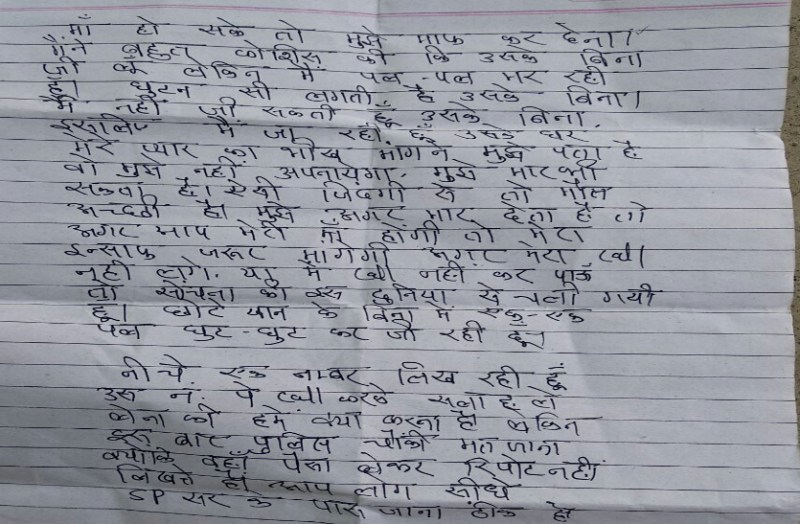 माँ हो सके तो मुझे माफ कर देना।
मैंने बहुत कोशिस की कि उसके बिना
जी लू लेकिन मैं पल-पल मर रही
हूं। घुटन सी लगती है उसके बिना।
मैं नहीं जी सकती हूँ उसके बिना.
इसलिए मैं जा रही हूँ उसके घर
मेरे प्यार का भीख मांगने मुझे पता है
वो मुझे नहीं अपनायेगा. मुझे मार भी
सकता है। ऐसी जिंदगी से तो मौत
अच्छी है। मुझे अगर मार देता है तो
अगर आप मेरी माँ होंगी तो मेरा
इन्साफ जरूर मांगेगी अगर मेरा
नही लगे. या मैं नहीं कर पाऊँ
तो सोचना की इस दुनिया से चली गयी
हूं। छोटे यान के बिना मैं एक-एक
पल घुट-घुट कर जी रही हूँ।
नीचे एक नम्बर लिख रही हूँ
उस नं. पे करके सलाह ले
लेना की हमें क्या करना है लेकिन
इस बाट पुलिस चौकी मत जाना
क्योकि वहाँ पैसा लेकर रिपोट नहीं
लिखते है आप लोग सीधे
SP सर के पास जाना ठीक है